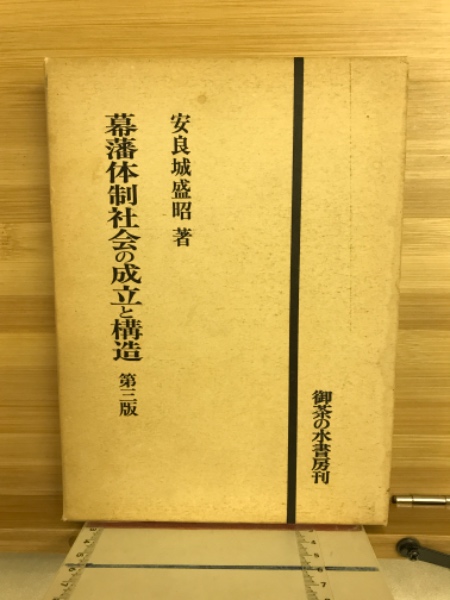 御茶の水書房刊
安良城盛昭 著
幕藩体制社会の成立と構造 第三版